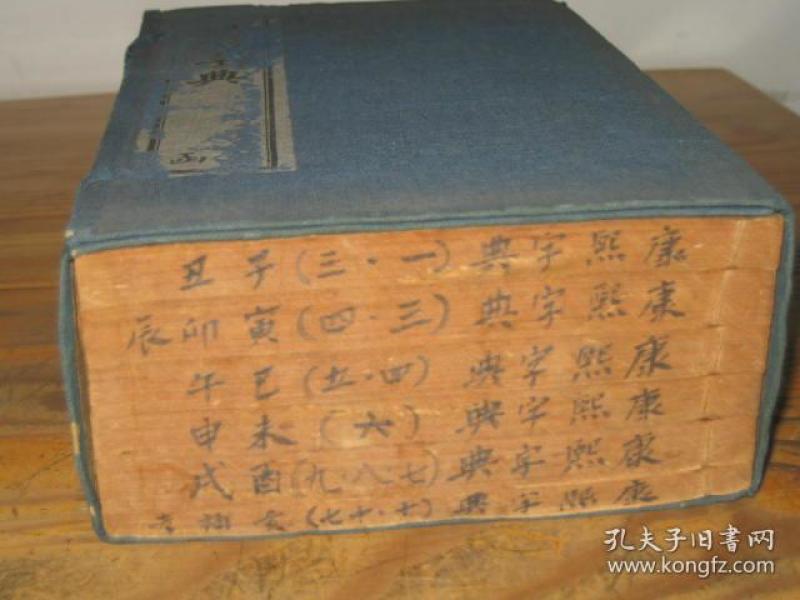 典
函
康熙字典(一·三)子丑
康熙字典(三·四)寅卯辰
康熙字典(四·五)巳午
康熙字典(六)未申
康熙字典(七·八·九)酉戌
康熙字典(十·十七)亥補考
孔夫子旧书网
www.kongfz.com